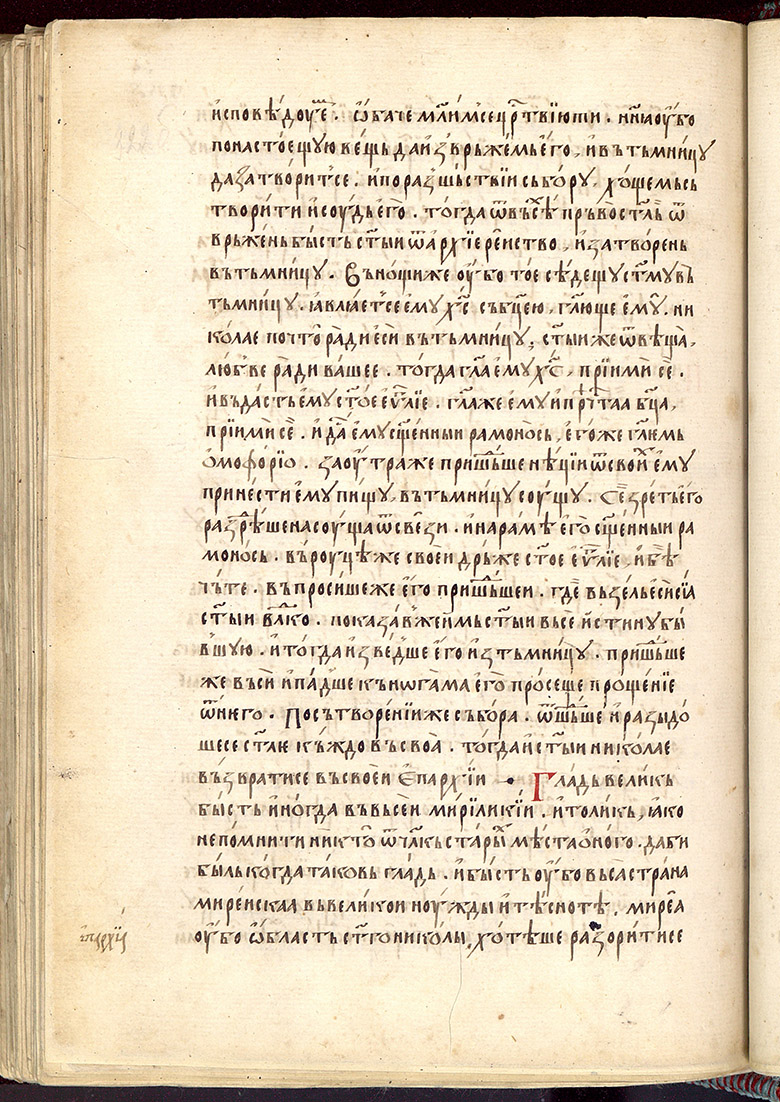 исповѣдоуѥ҃ . ѡ҆баче м҃лимсе цр҃твїюти . нн҃ꙗ оу҆бо
понастоещую вещь да и҆звръжемь є҆го , и҆ вътъмницу
да затворитсе . и҆ поразшьствїи събору , хощемь сь
творити и҆ соудь є҆го . тогда ѿ въсѣ пръвостл҃ь ѿ
врьжень бысть ст҃ыи ѿ а҆рхїеренство , и҆ затворень
вътъмницу . Въ нощи же оу҆бо тое сѣдещу ст҃му въ
тъмницу . ꙗ҆влꙗ҆етсе е҆му х҃с съ бц҃ею , гл҃юще е҆му . ни
колае почто ради е҆си вътъмницу , ст҃ыи же ѿвѣща ,
любве ради вашее . тогда гл҃а е҆му х҃с , прїими се .
и҆ въдасть е҆му ст҃ое е҆ѵ҃лїе . гл҃а же е҆му и҆ прч҃таа бц҃а ,
прїими се . и҆ да е҆му сщ҃енныи рамонось , е҆гоже гл҃емь
ѻ҆мофорїо . заоу҆тра же пришьше нѣцїи ѿ своих е҆му
принести е҆му пищу , вътъмницу соущу . Се зреть е҆го
разрѣшена соуща ѿ свези . и҆ на рамѣ е҆го сщ҃енныи ра
монось . въ роуцѣ же своеи дръже ст҃ое е҆ѵ҃лїе , и҆ бѣ
чьте . въпросише же е҆го пришьшеи . где възель е҆си сїа
ст҃ыи влд҃ко . показав же и҆мь ст҃ыи въсе и҆стину бы
вшую . и҆ тогда и҆зведше е҆го и҆зтъмницу . пришьше
же въси и҆ падше къ ногама е҆го просеще прощенїе
ѿ него . По сътворенїи же събора . ѿшьше и҆ разыдо
шесе с тлю къждо въ своа . тогда и҆ ст҃ыи николае
възвратисе въ своеи Е҆пархїи — Гладь великъ
бысть и҆ногда въ въсеи мирїликїи . и҆ толикъ , ꙗ҆ко
непомнити никто ѿ чл҃къ старых мѣста ѻ҆ного . даби
быль когда таковъ гладь . и҆ бысть оу҆бо въса страна
мирейскаа въ великои ноужды и҆ тѣснотѣ . мирѐа
оу҆бо ѡ҆бласть ст҃го николы , хотѣше разоритисе
е҆пархїи